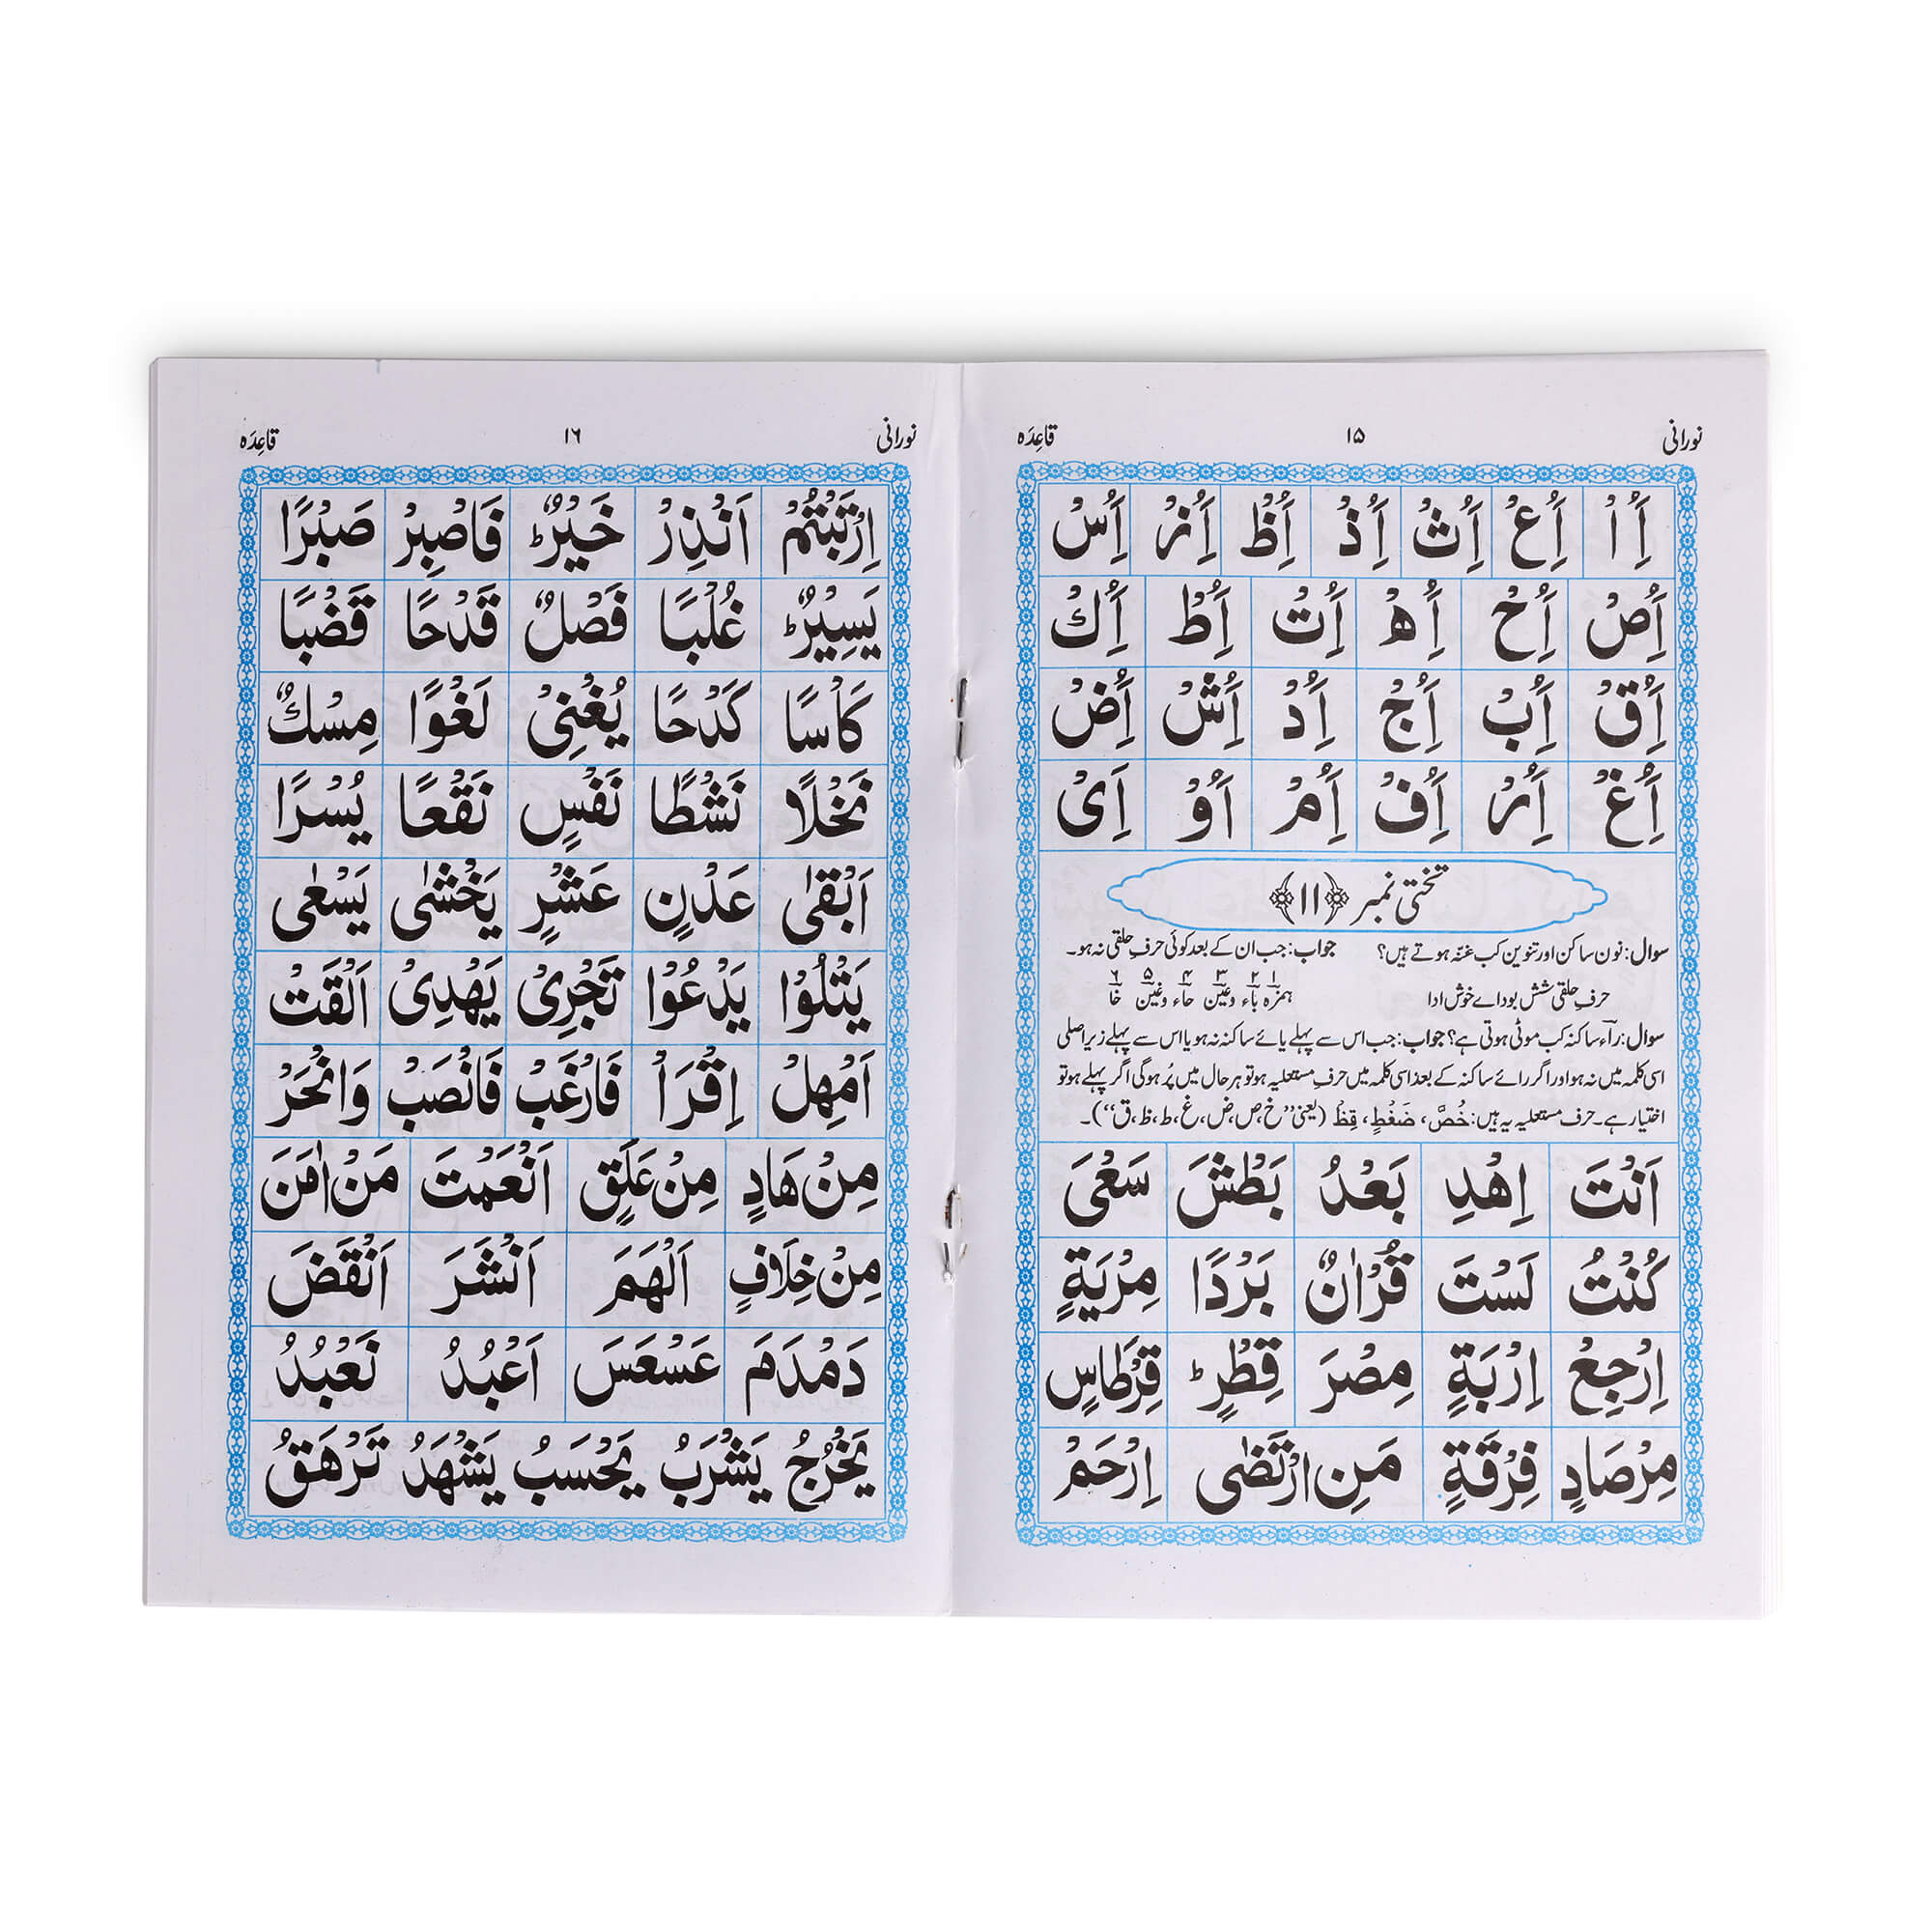 نورانی ۱۵ قاعِدَہ
أَِاُ اَِعُْ اَِثُْ اَِذُْ اَِظُْ اَِزُْ اَِسُْ
اَِصُْ اَِحُْ اَِهُْ اَِتُْ اَِطُْ اَِكُْ
اَِقُْ اَِبُْ اَِجُْ اَِدُْ اَِشُْ اَِضُْ
اَِغُْ اَِرُْ اَِفُْ اَِمُْ اَوُْ اَِیْ
تختی نمبر ﴿۱۱﴾
سوال: نون ساکن اور تنوین کب غنّہ ہوتے ہیں؟ جواب: جب ان کے بعد کوئی حرفِ حلقی نہ ہو۔
حرفِ حلقی شش بود اے خوش ادا ہمزہ ہاء و عین حاء و غین خا
سوال: رآء ساکنہ کب موٹی ہوتی ہے؟ جواب: جب اس سے پہلے یائے ساکنہ نہ ہو یا اس سے پہلے زیر اصلی
اسی کلمہ میں نہ ہو اور اگر رائے ساکنہ کے بعد اسی کلمہ میں حرفِ مستعلیہ ہو تو ہر حال میں پُر ہوگی اگر پہلے ہو تو
اختیار ہے۔ حرف مستعلیہ یہ ہیں: خُصَّ، ضَغْطٍ، قِظْ (یعنی ’’خ، ص، ض، غ، ط، ظ، ق‘‘)۔
اَنْتَ اِهْدِ بَعْدُ بَطْشَ سَعْیَ
كُنْتُ لَسْتَ قُرْاٰنٌ بَرْدًا مِرْیَةٍ
اِرْجِعْ اِرْبَةٍ مِصْرَ قِطْرٍ ط قِرْطَاسٍ
مِرْصَادٍ فِرْقَةٍ مَنِ ارْتَضٰی اِرْحَمْ
نورانی ۱۶ قاعِدَہ
اِرْتَبْتُمْ اَنْذِرْ خَیْرٌ ط فَاصْبِرْ صَبْرًا
یَسِیْرٌ ط غُلْبًا فَصْلٌ قَدْحًا قَضْبًا
كَاْسًا كَدْحًا یُغْنِیْ لَغْوًا مِسْكٌ
نَخْلًا نَشْطًا نَفْسٍ نَقْعًا یُسْرًا
اَبْقٰی عَدْنٍ عَشْرٍ یَخْشٰی یَسْعٰی
یَتْلُوْا یَدْعُوْا تَجْرِیْ یَهْدِیْ اَلْقَتْ
اَمْهِلْ اِقْرَاْ فَارْغَبْ فَانْصَبْ وَانْحَرْ
مِنْ هَادٍ مِنْ عَلَقٍ اَنْعَمْتَ مَنْ اٰمَنَ
مِنْ خِلَافٍ اَلْهَمَ اَنْشَرَ اَنْقَضَ
دَمْدَمَ عَسْعَسَ اَعْبُدُ نَعْبُدُ
یَخْرُجُ یَشْرَبُ یَحْسَبُ یَشْهَدُ تَرْهَقُ